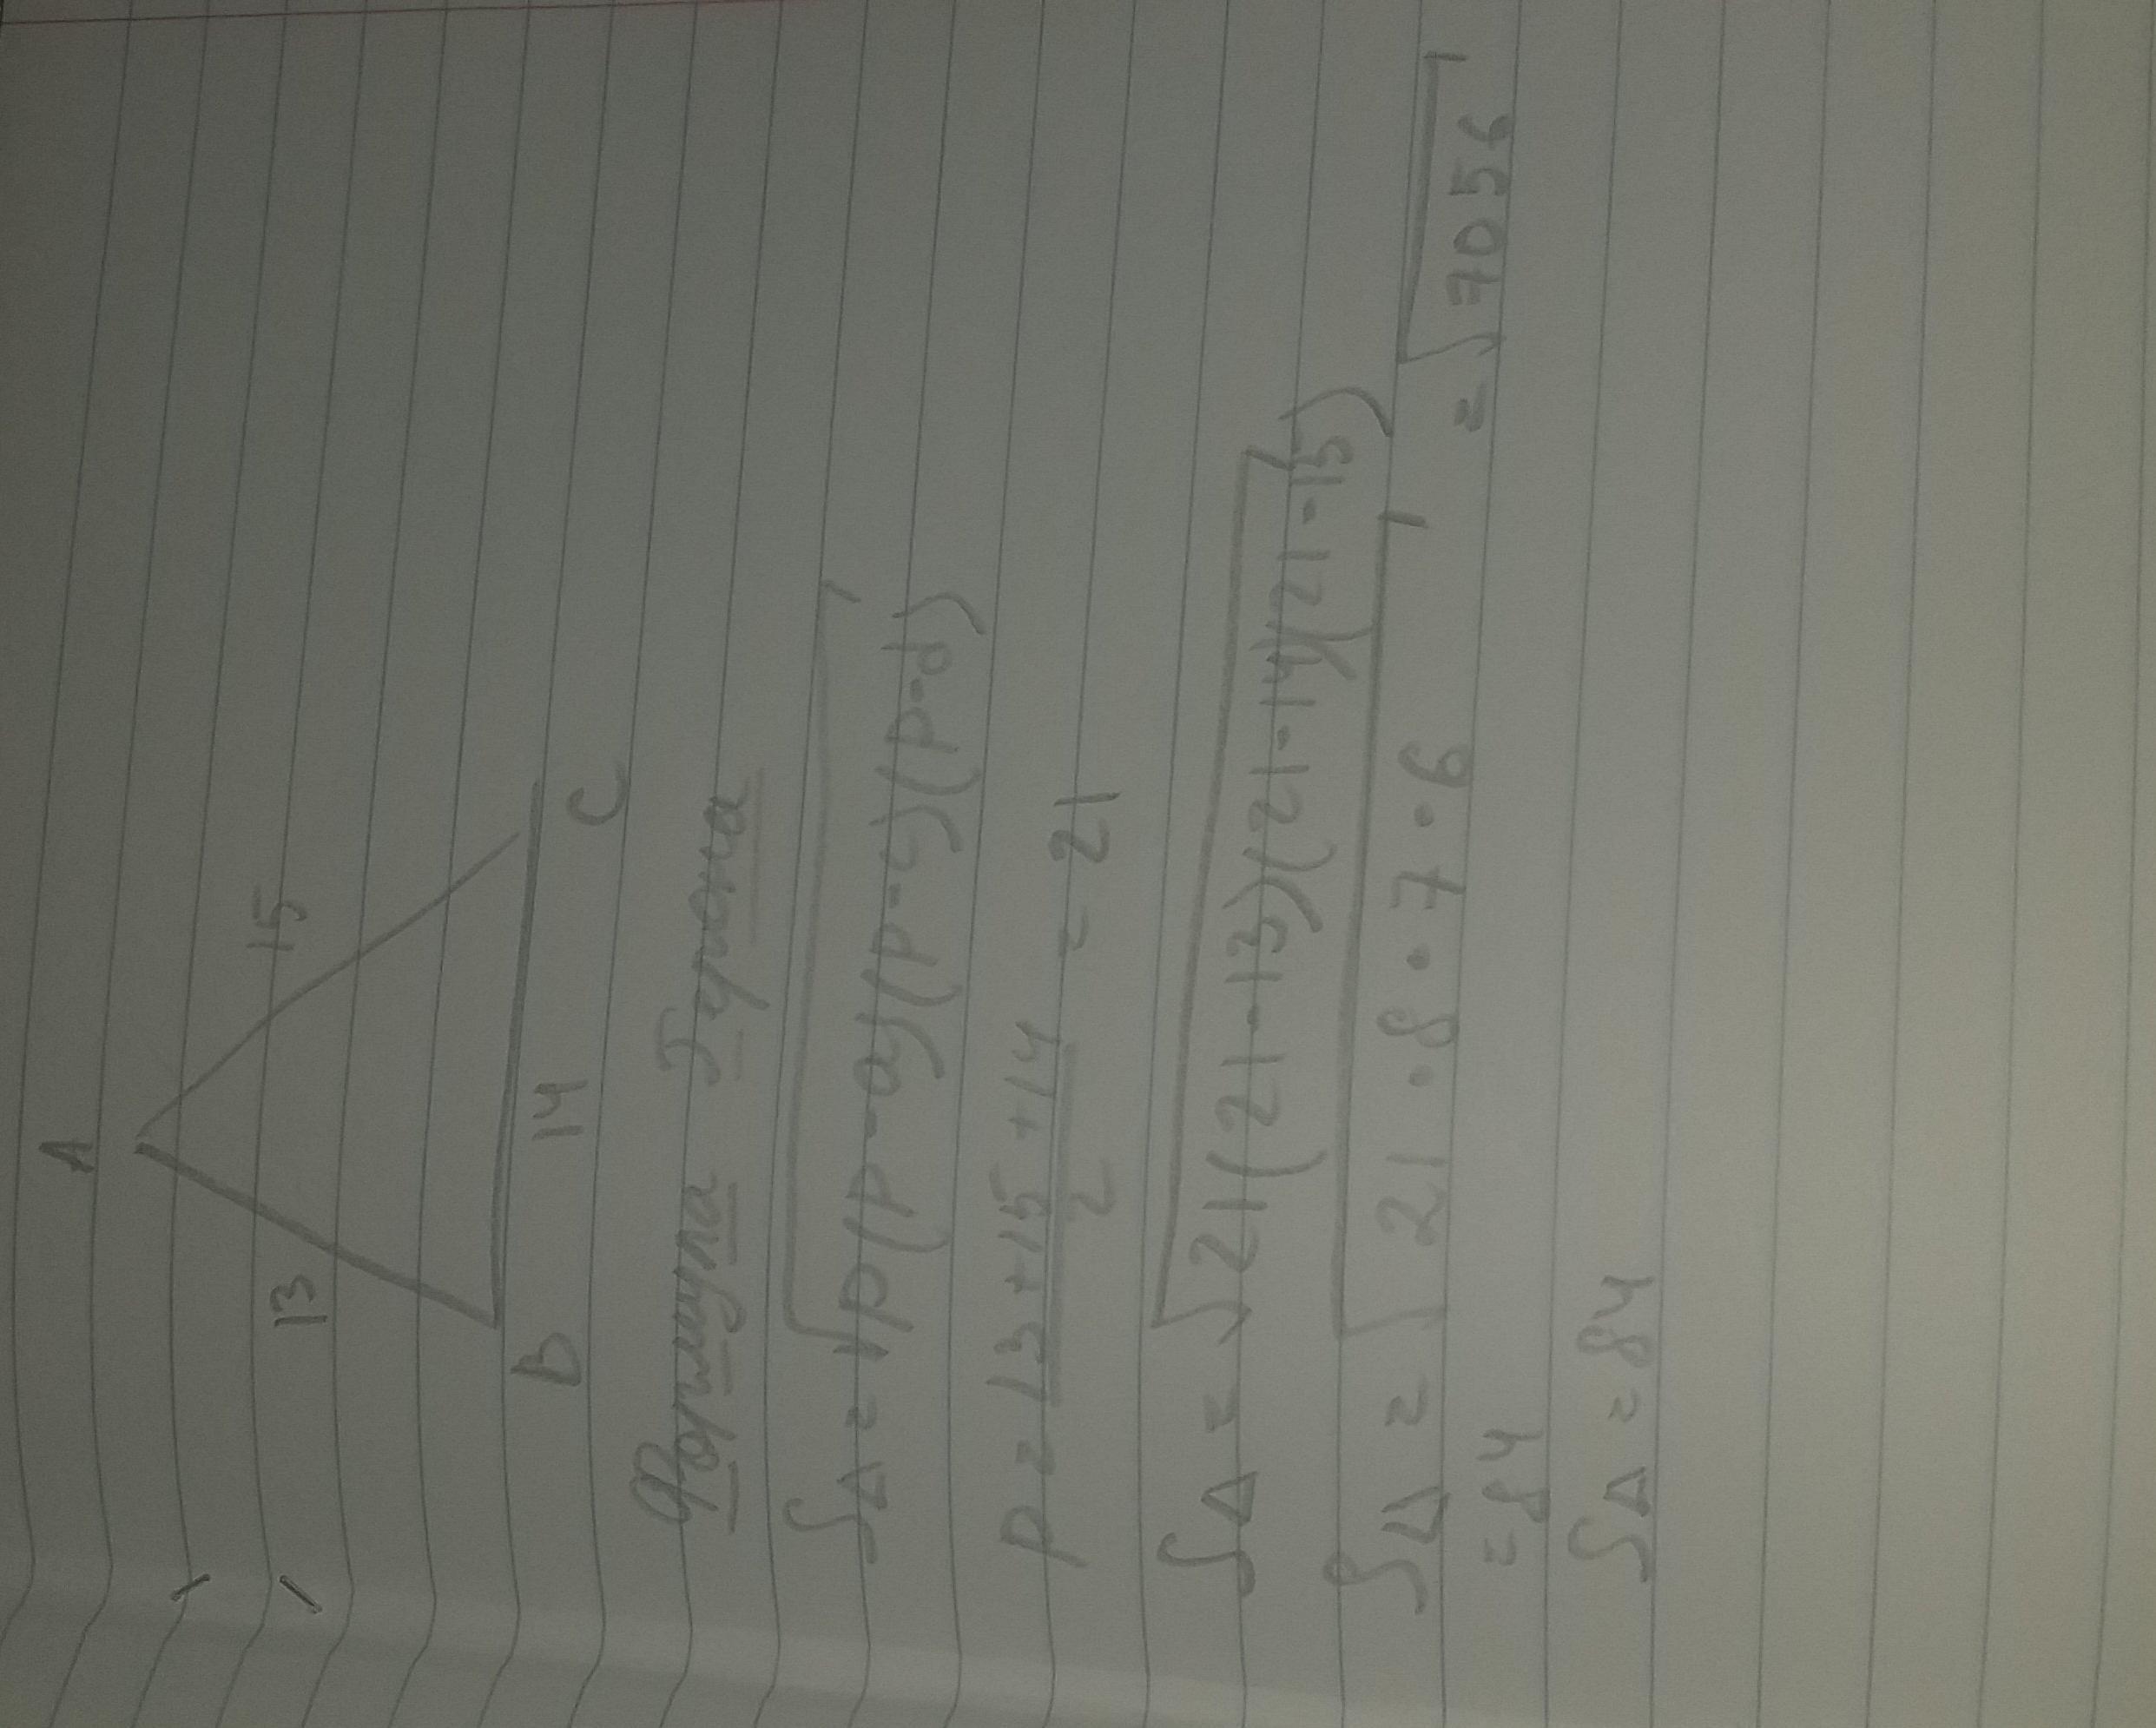 A
13 15
B 14 C
Формула Герона
S∆ = √p(p-a)(p-c)(p-d)
p = 13+15+14/2 = 21
S∆ = √21(21-13)(21-14)(21-15)
S∆ = √21·8·7·6 = √7056
= 84
S∆ = 84